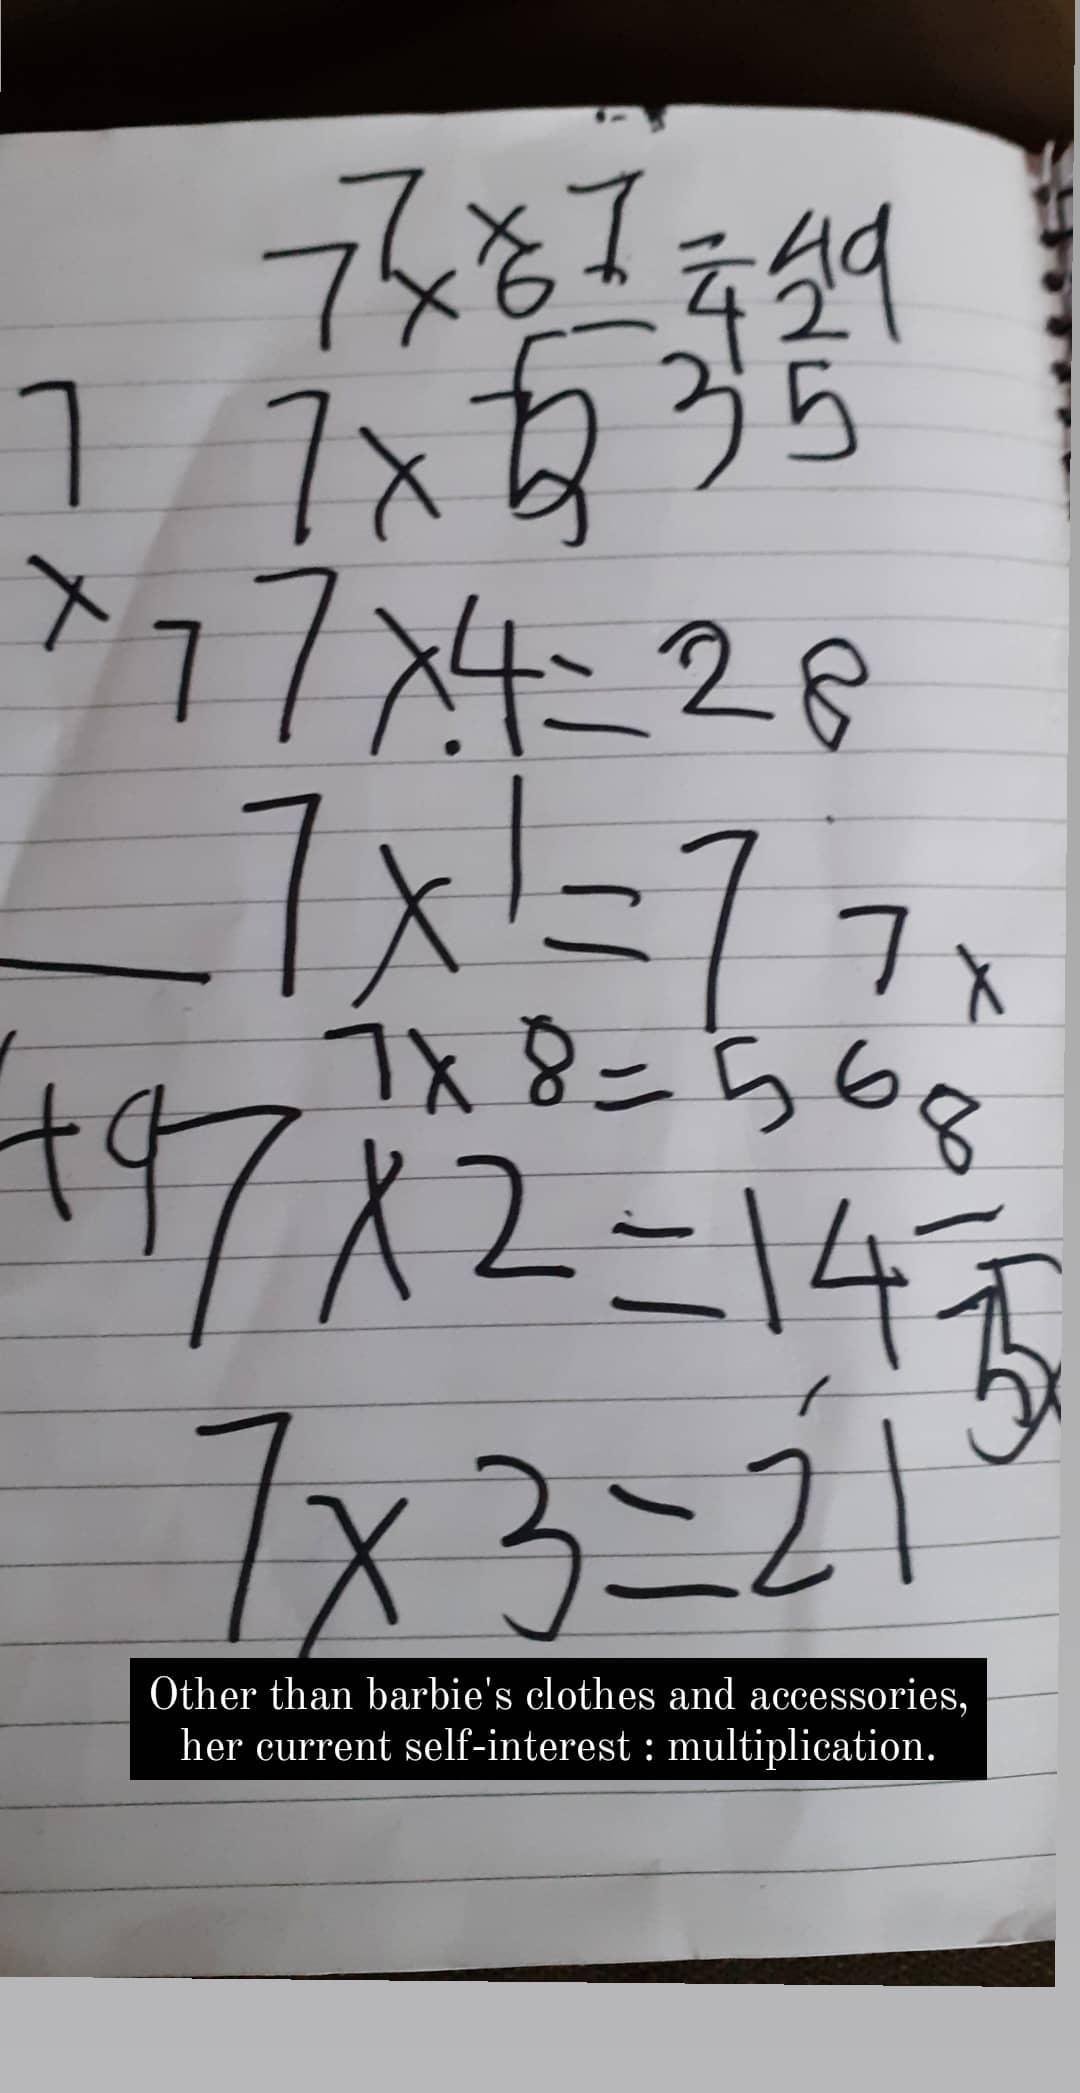 7 x 7 = 49
7 x 6 = 42
7 x 5 35
7
x 7
7 x 4 = 28
7 x 1 = 7
7 x
8
7 x 8 = 56
49
7 x 2 = 14
7 x 3 = 21
Other than barbie's clothes and accessories,
her current self-interest : multiplication.